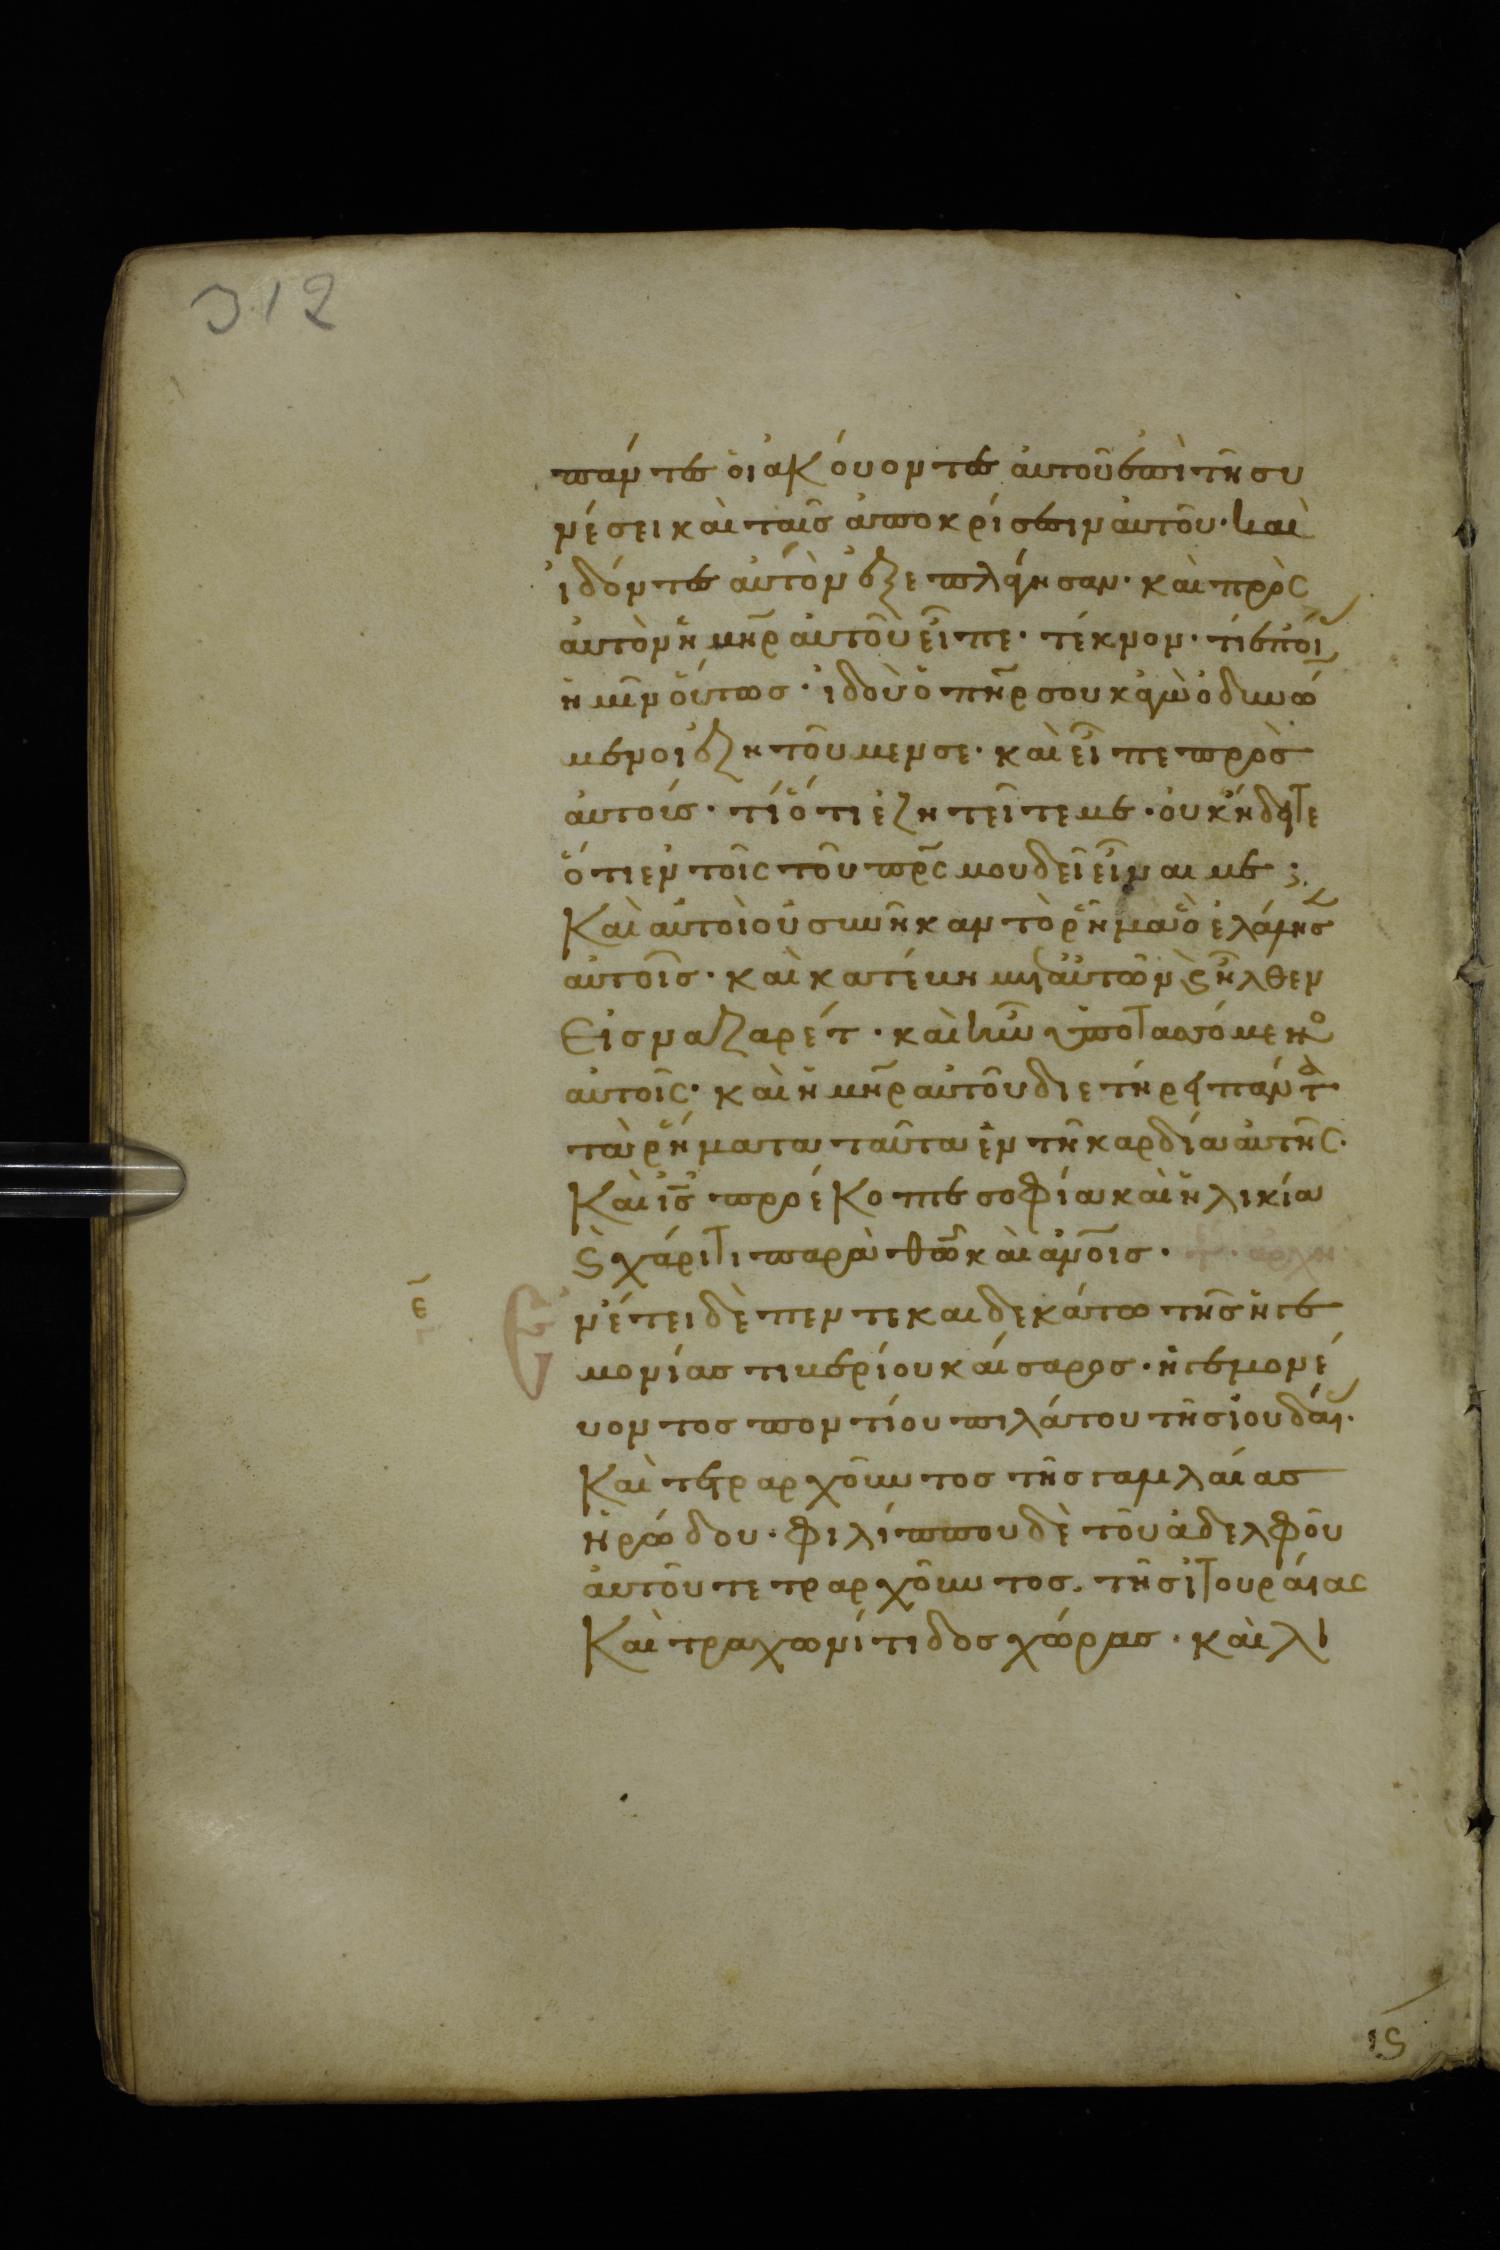 312
πάντες ὁι ἀκόυοντες ἀυτοῦ ἐπὶ τῆ συ
νέσει καὶ ταῖς ἀποκρίσεσιν ἀυτοῦ· καὶ
ἰδόντες ἀυτὸν ἐξεπλάγησαν· καὶ πρὸς
ἀυτὸν ἡ μῆρ ἀυτοῦ εἶπε· τέκνον· τί ἐποί
ημῖν ὅυτως· ἰδοὺ ὁ πῆρ σου κἀγὼ ὀδυνώ
μενοι ἐζητοῦμεν σε· καὶ εἶπε πρὸς
ἀυτούς· τί ὅτι ἐζητεῖτε με· ὀυκ ἤδειτε
ὅτι ἐν τοῖς τοῦ πρς μου δεῖ εἶναι με;
Καὶ ἀυτοὶ οὐ συνῆκαν τὸ ῥῆμα ὃ ἐλάλησ
ἀυτοῖς· καὶ κατέβη μετ ἀυτῶν ϗ ἦλθεν
Εἰς ναζαρέτ· καὶ ἦν ὑποτασσόμενος
ἀυτοῖς· καὶ ἡ μῆρ ἀυτοῦ διετήρει πάντα
τὰ ῥήματα ταῦτα ἐν τῆ καρδία ἀυτῆς·
Καὶ ις προέκοπτε σοφία καὶ ἡλικία
ϗ χάριτι παρὰ θῶ καὶ ἀνοις·
ε
Ἐν έτει δὲ πεντεκαιδεκάτω τῆς ἡγε
μονίας τιβερίου καίσαρος· ἡγεμονέ
υοντος ποντίου πιλάτου τῆς ἰουδαί·
Καὶ τετραρχοῦντος τῆς γαλιλαίας
ἡρώδου· φιλίππου δὲ τοῦ ἀδελφοῦ
ἀυτοῦ τετραρχοῦντος· τῆς ἰτουραίας
Καὶ τραχωνίτιδος χώρας· καὶ λυ
ις